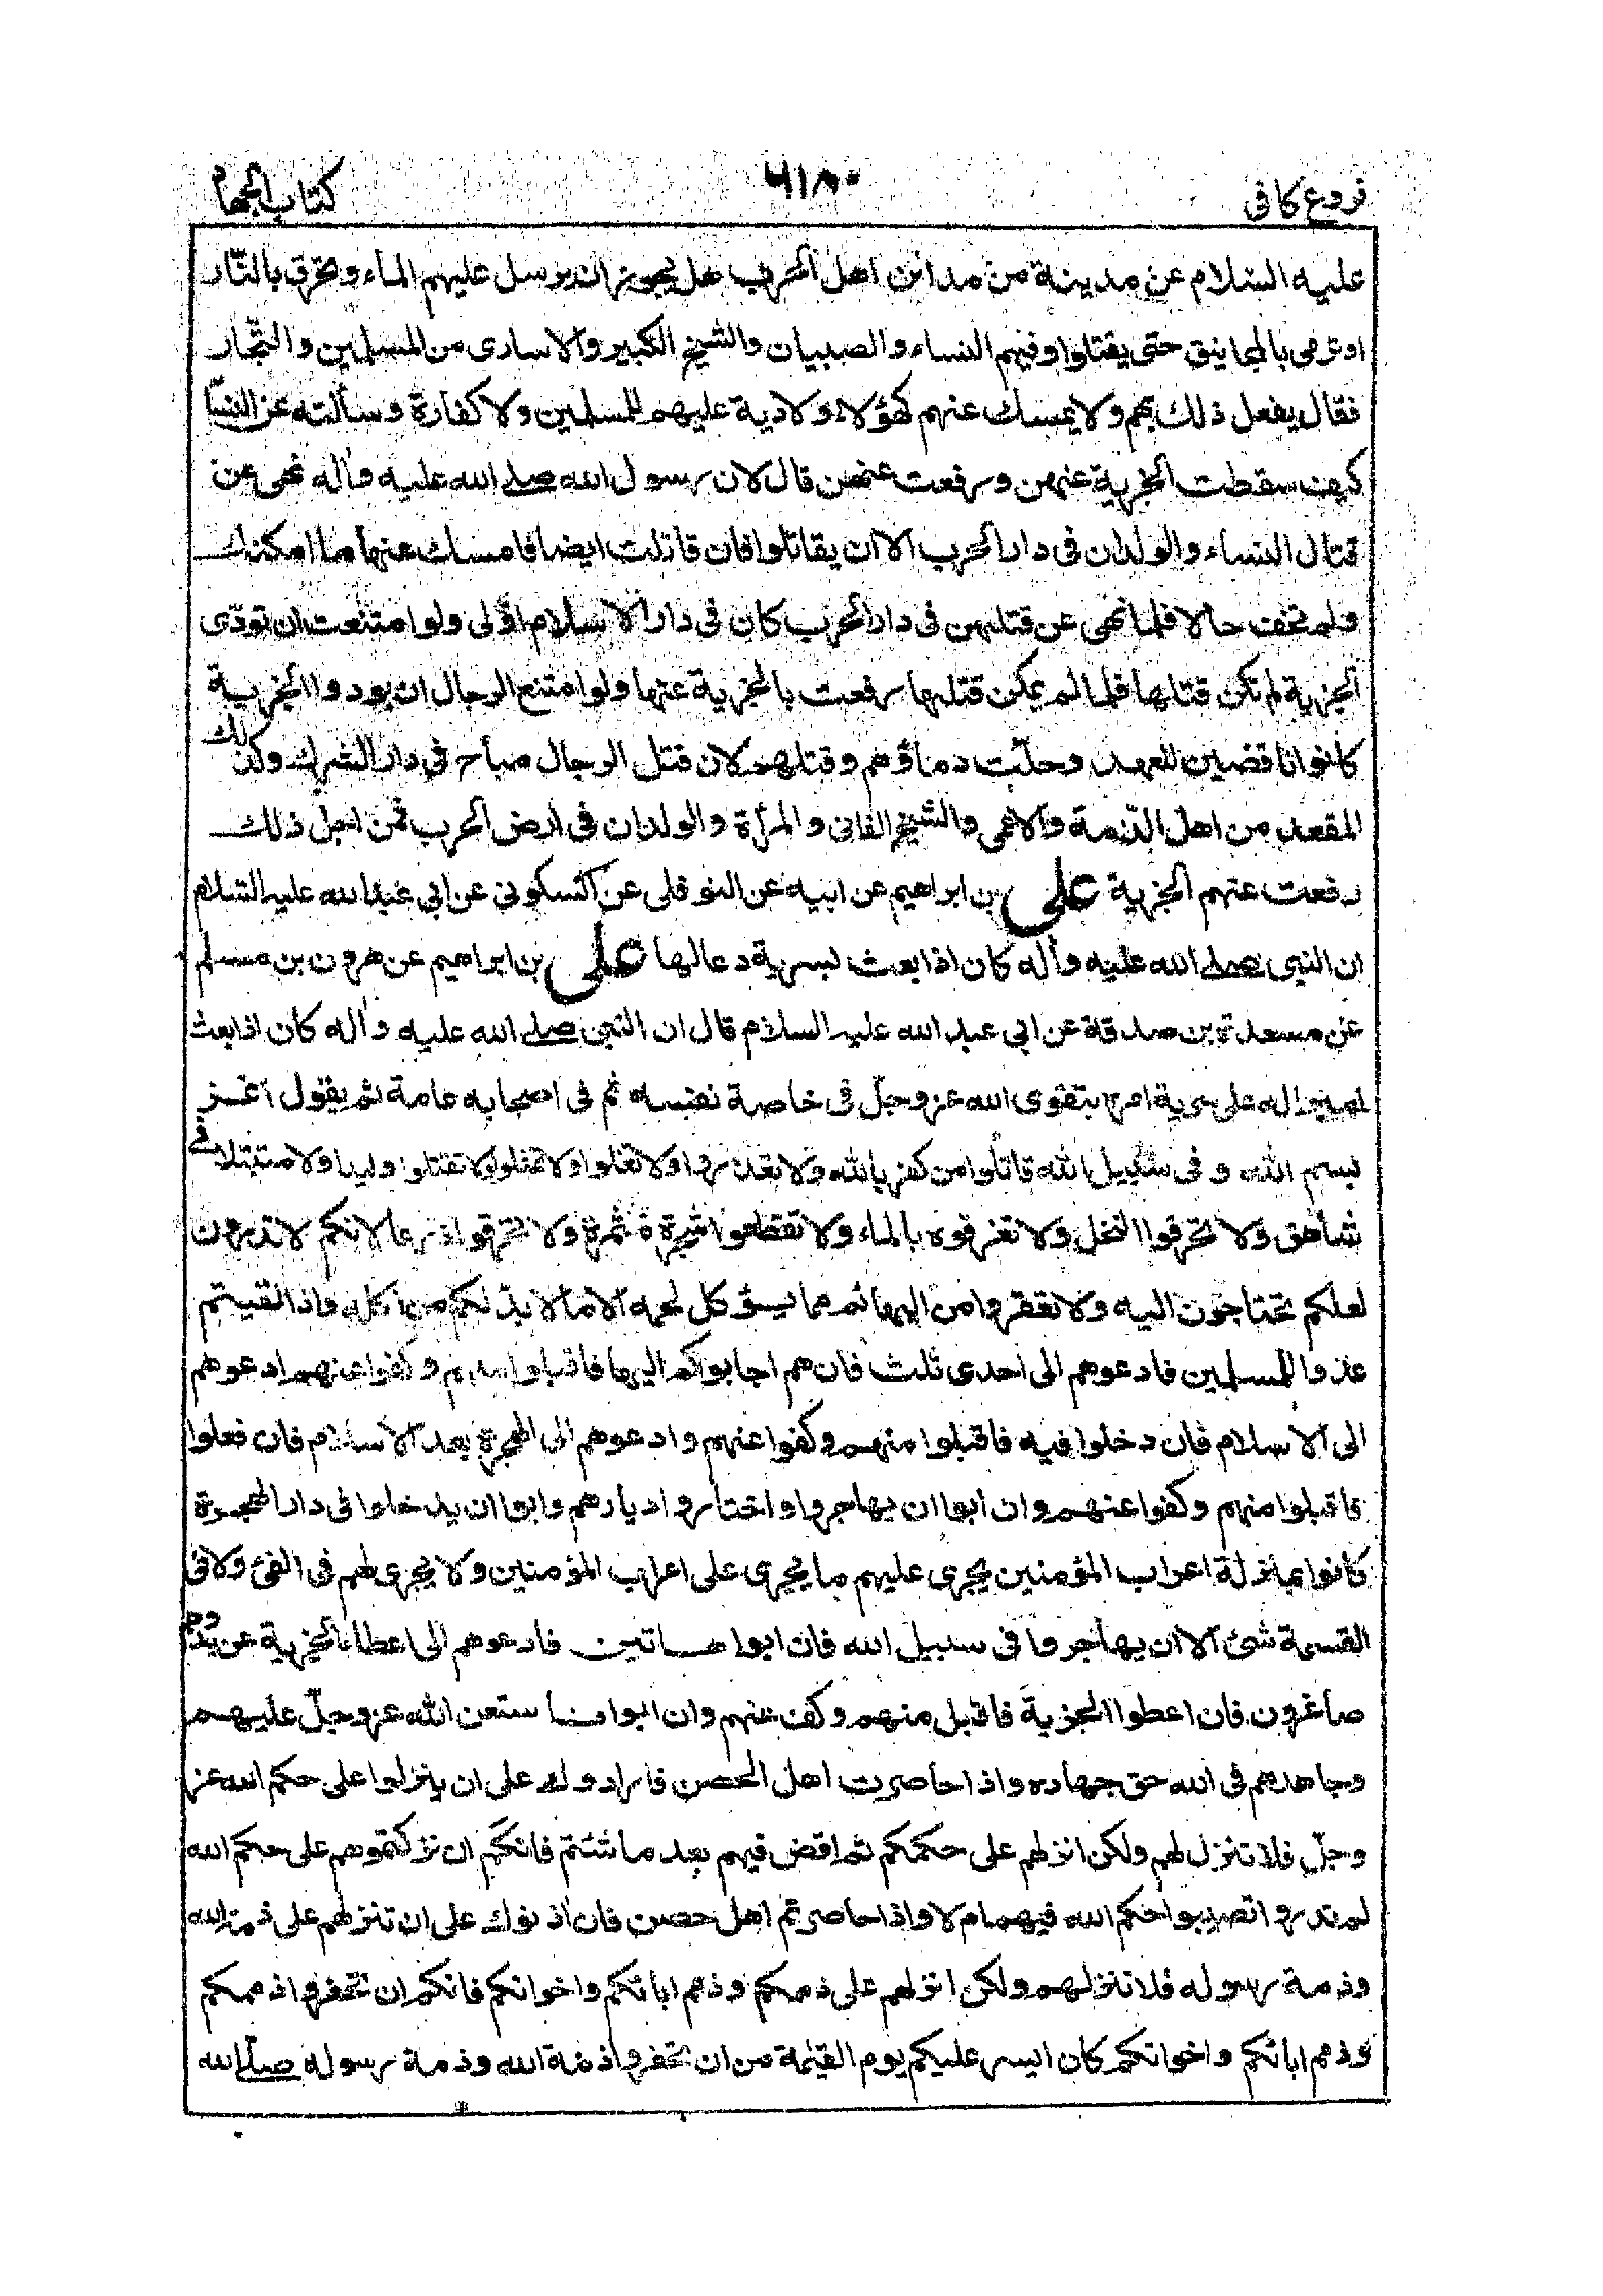 فروع كافى ٦١٨٠ كتاب الجهاد
عليه السلام عن مدينة من مدائن اهل الحرب هل يجوز ان يرسل عليهم الماء وتحرق بالنّار
او ترمى بالمجانيق حتى يقتلوا وفيهم النساء والصبيان والشيخ الكبير والاسارى من المسلمين والتّجار
فقال يفعل ذلك بهم ولا يمسك عنهم لهؤلاء ولا دية عليهم للمسلمين ولا كفارة وسألته عن النسآ
كيف سقطت الجزية عنهن ورفعت عنهن قال لان رسول الله صلى الله عليه وآله نهى عن
قتال النساء والولدان فى دار الحرب الا ان يقاتلوا فان قاتلت ايضا فامسك عنها ما امكنك
ولم تخف حالا فلما نهى عن قتلهن فى دار الحرب كان فى دار الاسلام اولى ولو امتنعت ان تودّى
الجزية لم تكن قتلها فلما لم يمكن قتلها رفعت بالجزية عنها ولو امتنع الرجال ان يودوا الجزية
كانوا ناقضين للعهد وحلّت دماؤهم وقتلهم لان قتل الرجال مباح فى دار الشرك وكذلك
المقعد من اهل الذّمة والاعمى والشيخ الفانى والمرأة والولدان فى ارض الحرب فمن اجل ذلك
رفعت عنهم الجزية على بن ابراهيم عن ابيه عن النوفلى عن السكونى عن ابى عبد الله عليه السلام
ان النبى صلى الله عليه وآله كان اذا بعث بسرية دعا لها على بن ابراهيم عن هرون بن مسلم
عن مسعدة بن صدقة عن ابى عبد الله عليه السلام قال ان النبى صلى الله عليه وآله كان اذا بعث
اميرا له على سرية امره بتقوى الله عز وجلّ فى خاصة نفسه ثم فى اصحابه عامة ثم يقول اغز
بسم الله وفى سبيل الله قاتلوا من كفر بالله ولا تغدروا ولا تغلوا ولا تمثلوا ولا تقتلوا وليدا ولا متبتلا فى
شاهق ولا تحرقوا النخل ولا تغرقوه بالماء ولا تقطعوا شجرة مثمرة ولا تحرقوا زرعا لانكم لا تدرون
لعلكم تحتاجون اليه ولا تعقروا من البهائم مما يؤكل لحمه الا ما لا بدّ لكم من اكله واذا لقيتم
عدوا للمسلمين فادعوهم الى احدى ثلث فان هم اجابوكم اليها فاقبلوا منهم وكفوا عنهم ادعوهم
الى الاسلام فان دخلوا فيه فاقبلوا منهم وكفوا عنهم وادعوهم الى الهجرة بعد الاسلام فان فعلوا
فاقبلوا منهم وكفوا عنهم وان ابوا ان يهاجروا واختاروا ديارهم وابوا ان يدخلوا فى دار الهجرة
كانوا بمنزلة اعراب المؤمنين يجرى عليهم ما يجرى على اعراب المؤمنين ولا يجرى لهم فى الفئ ولا فى
القسمة شئ الا ان يهاجروا فى سبيل الله فان ابوا هاتين فادعوهم الى اعطاء الجزية عن يد وهم
صاغرون فان اعطوا الجزية فاقبل منهم وكف عنهم وان ابوا فاستعن الله عز وجلّ عليهم
وجاهدهم فى الله حق جهاده واذا حاصرت اهل الحصن فارادوك على ان ينزلوا على حكم الله عز
وجلّ فلا تنزل لهم ولكن انزلهم على حكمكم ثم اقض فيهم بعد ما شئتم فانكم ان تركتموهم على حكم الله
لم تدروا تصيبوا حكم الله فيهم ام لا واذا حاصرتم اهل حصن فان اذنوك على ان تنزلهم على ذمة الله
وذمة رسوله فلا تنزلهم ولكن انزلهم على ذممكم وذمم ابائكم واخوانكم فانكم ان تخفروا ذممكم
وذمم ابائكم واخوانكم كان ايسر عليكم يوم القيٰمة من ان تخفروا ذمة الله وذمة رسوله صلّى الله